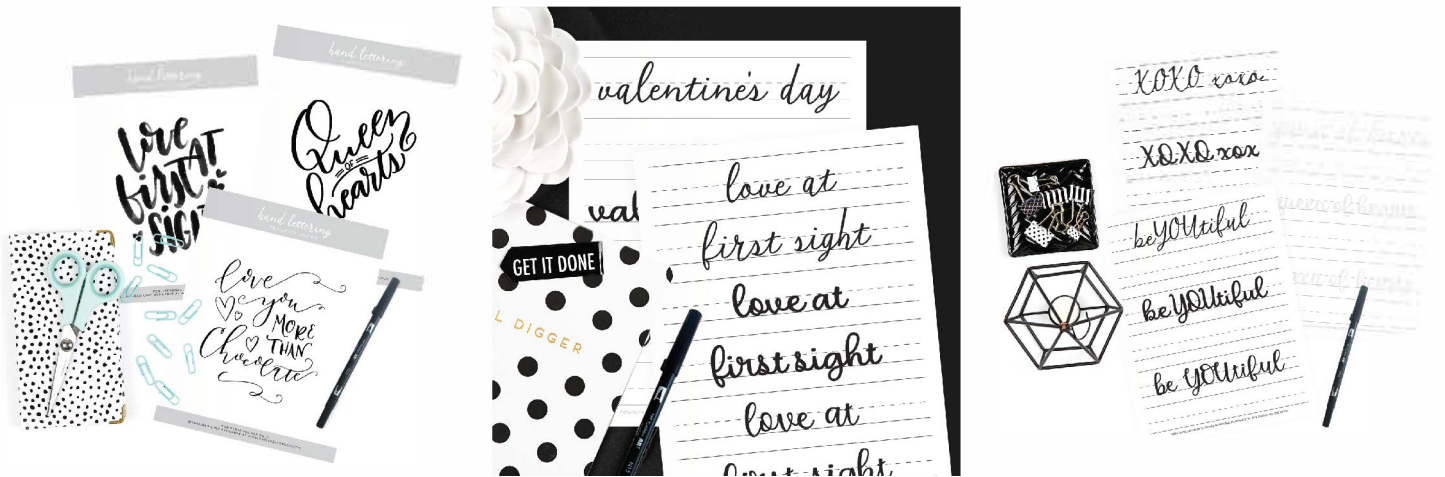 hand lettering
hand lettering
love
AT
first
SIGHT
Queen
OF
hearts
hand lettering
love
you
MORE
THAN
Chocolate
valentine's day
val
GET IT DONE
L DIGGER
love at
first sight
love at
first sight
love at
first sight
XOXO xoxo
XOXO xox
beYOUtiful
beYOUtiful
be YOUtiful
queen of hearts
queen of hearts